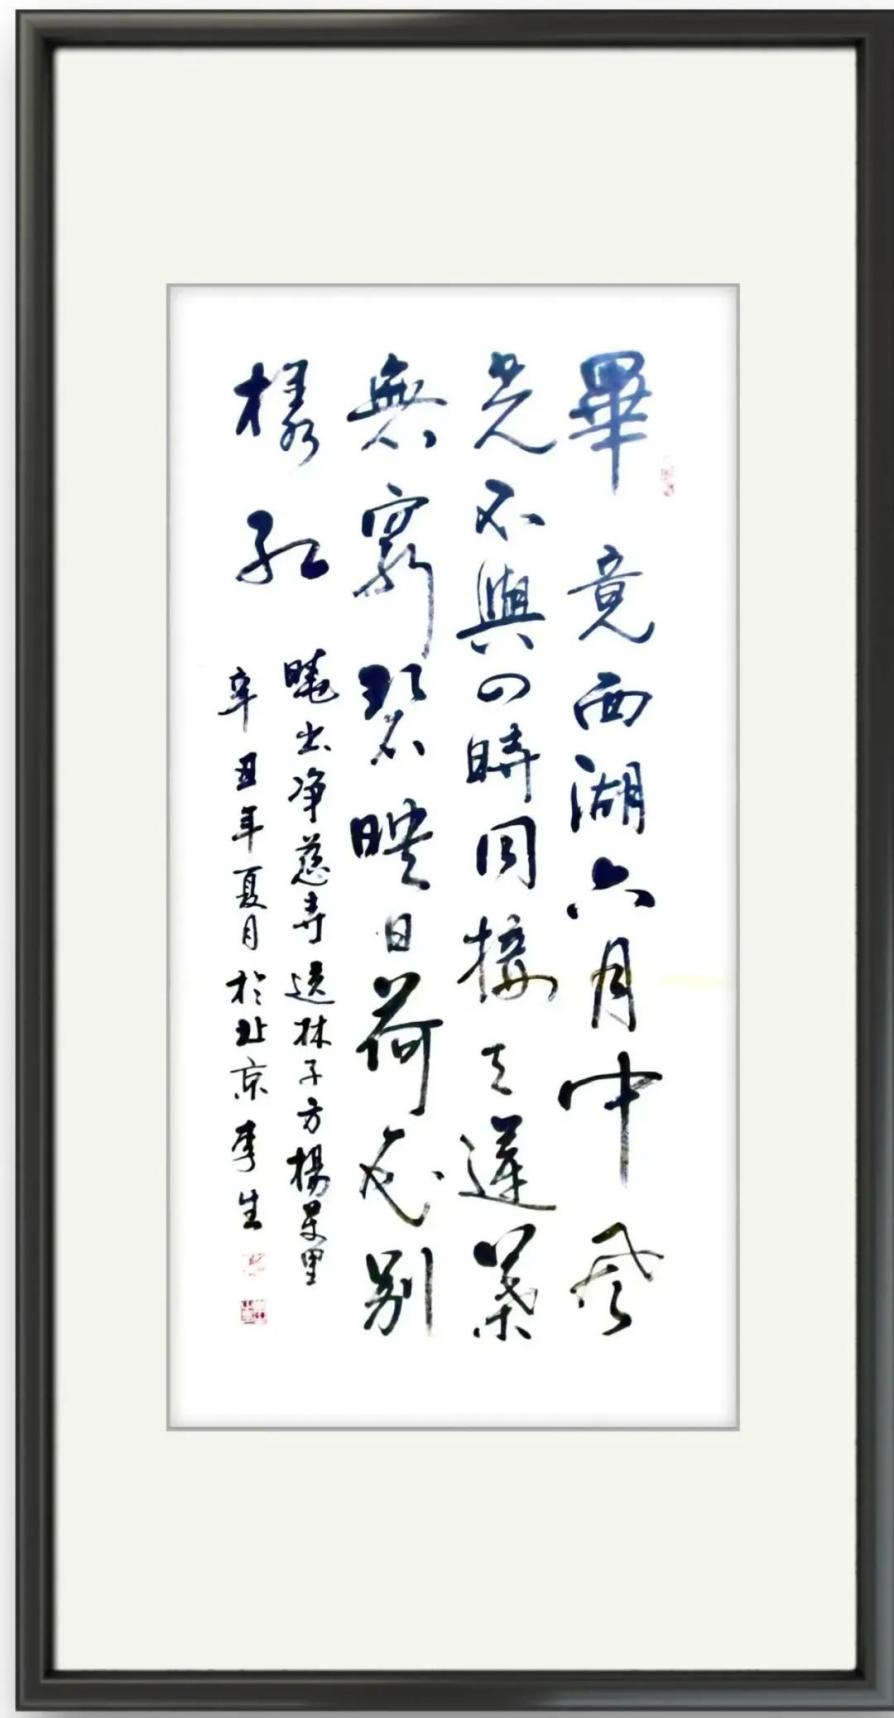 畢竟西湖六月中風
光不與四時同接天蓮葉
無窮碧映日荷花別
樣紅
曉出净慈寺送林子方楊萬里
辛丑年夏月於北京李生